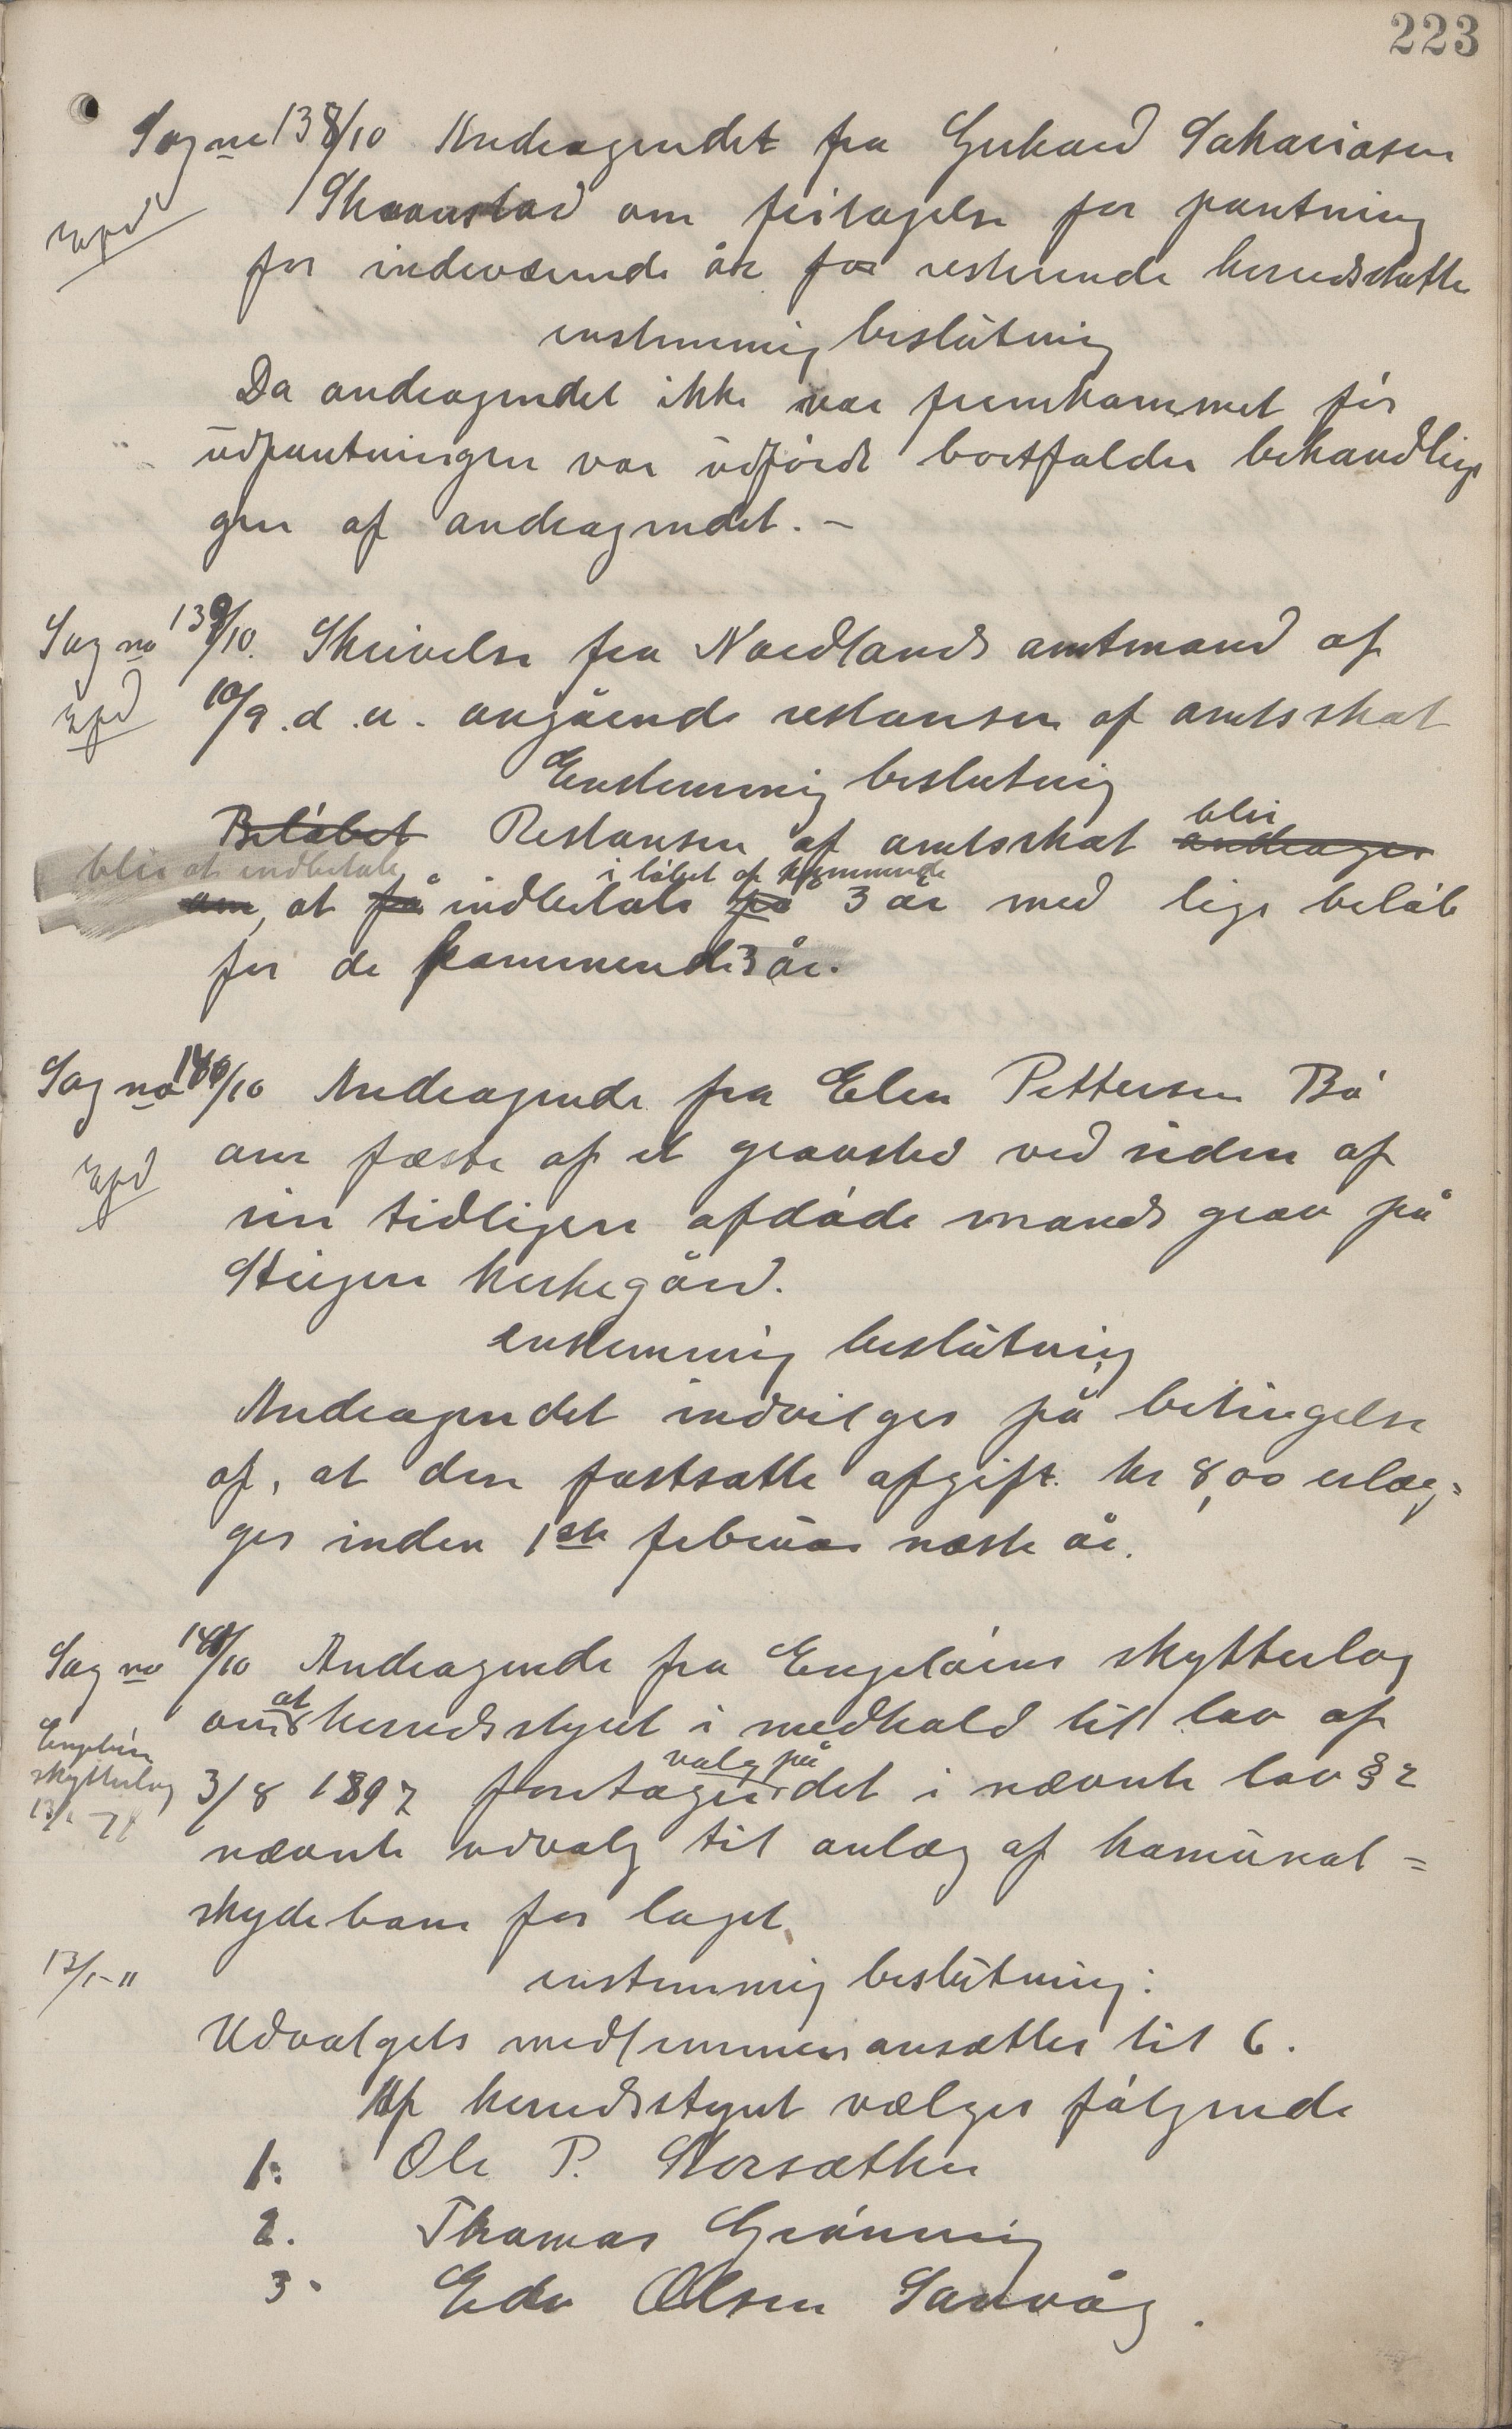 223
Sag no 138/10 Andragendet fra Gerhard Sakariasen
Expd
Skaanstad om fritagelse for pantning
for indeværende år for resterende herredskatte
enstemmig beslutning
Da andragendet ikke var fremkommet før
udpantningen var udførdt bortfalder behandlig
gen af andragendet. –
Sag no 139/10. Skrivelse fra Nordlands amtmand af
Expd
10/9. d. a. angående restansen af amtsskat
Enstemmig beslutning
Beløbet Restansen af amtsskat andrager
blir
blir at indbetale
i løbet af kommende
om, at få indbetale på 3 år med lige beløb
for de kommende 3 år.
Sag no 140/10 Andragende fra Elen Pettersen Bø
Expd
om fæste af et gravsted ved siden af
sin tidligere afdøde mands grav på
Steigen kirkegård.
enstemmig beslutning
Andragendet indvilges på betingelse
af, at den fastsatte afgift kr 8,00 erlæg=
ges inden 1ste februar næste år.
Sag no 141/10 Andragende fra Engeløens skytterlag
Engeløen
skytterlag
13/1 – 11
om at herredsstyret i medhold til lov af
3/8 1897 foretager valg på det i nævnte lov § 2
nævnte udvalg til anlæg af komunal =
skydebane for laget.
13/1 – 11
enstemmig beslutning:
Udvalgets medlemmer ansættes til 6.
Af herredsstyret vælges følgende
1. Ole P. Storsæther
2. Thomas Grønning
3. Edv Olsen Sanvåg.